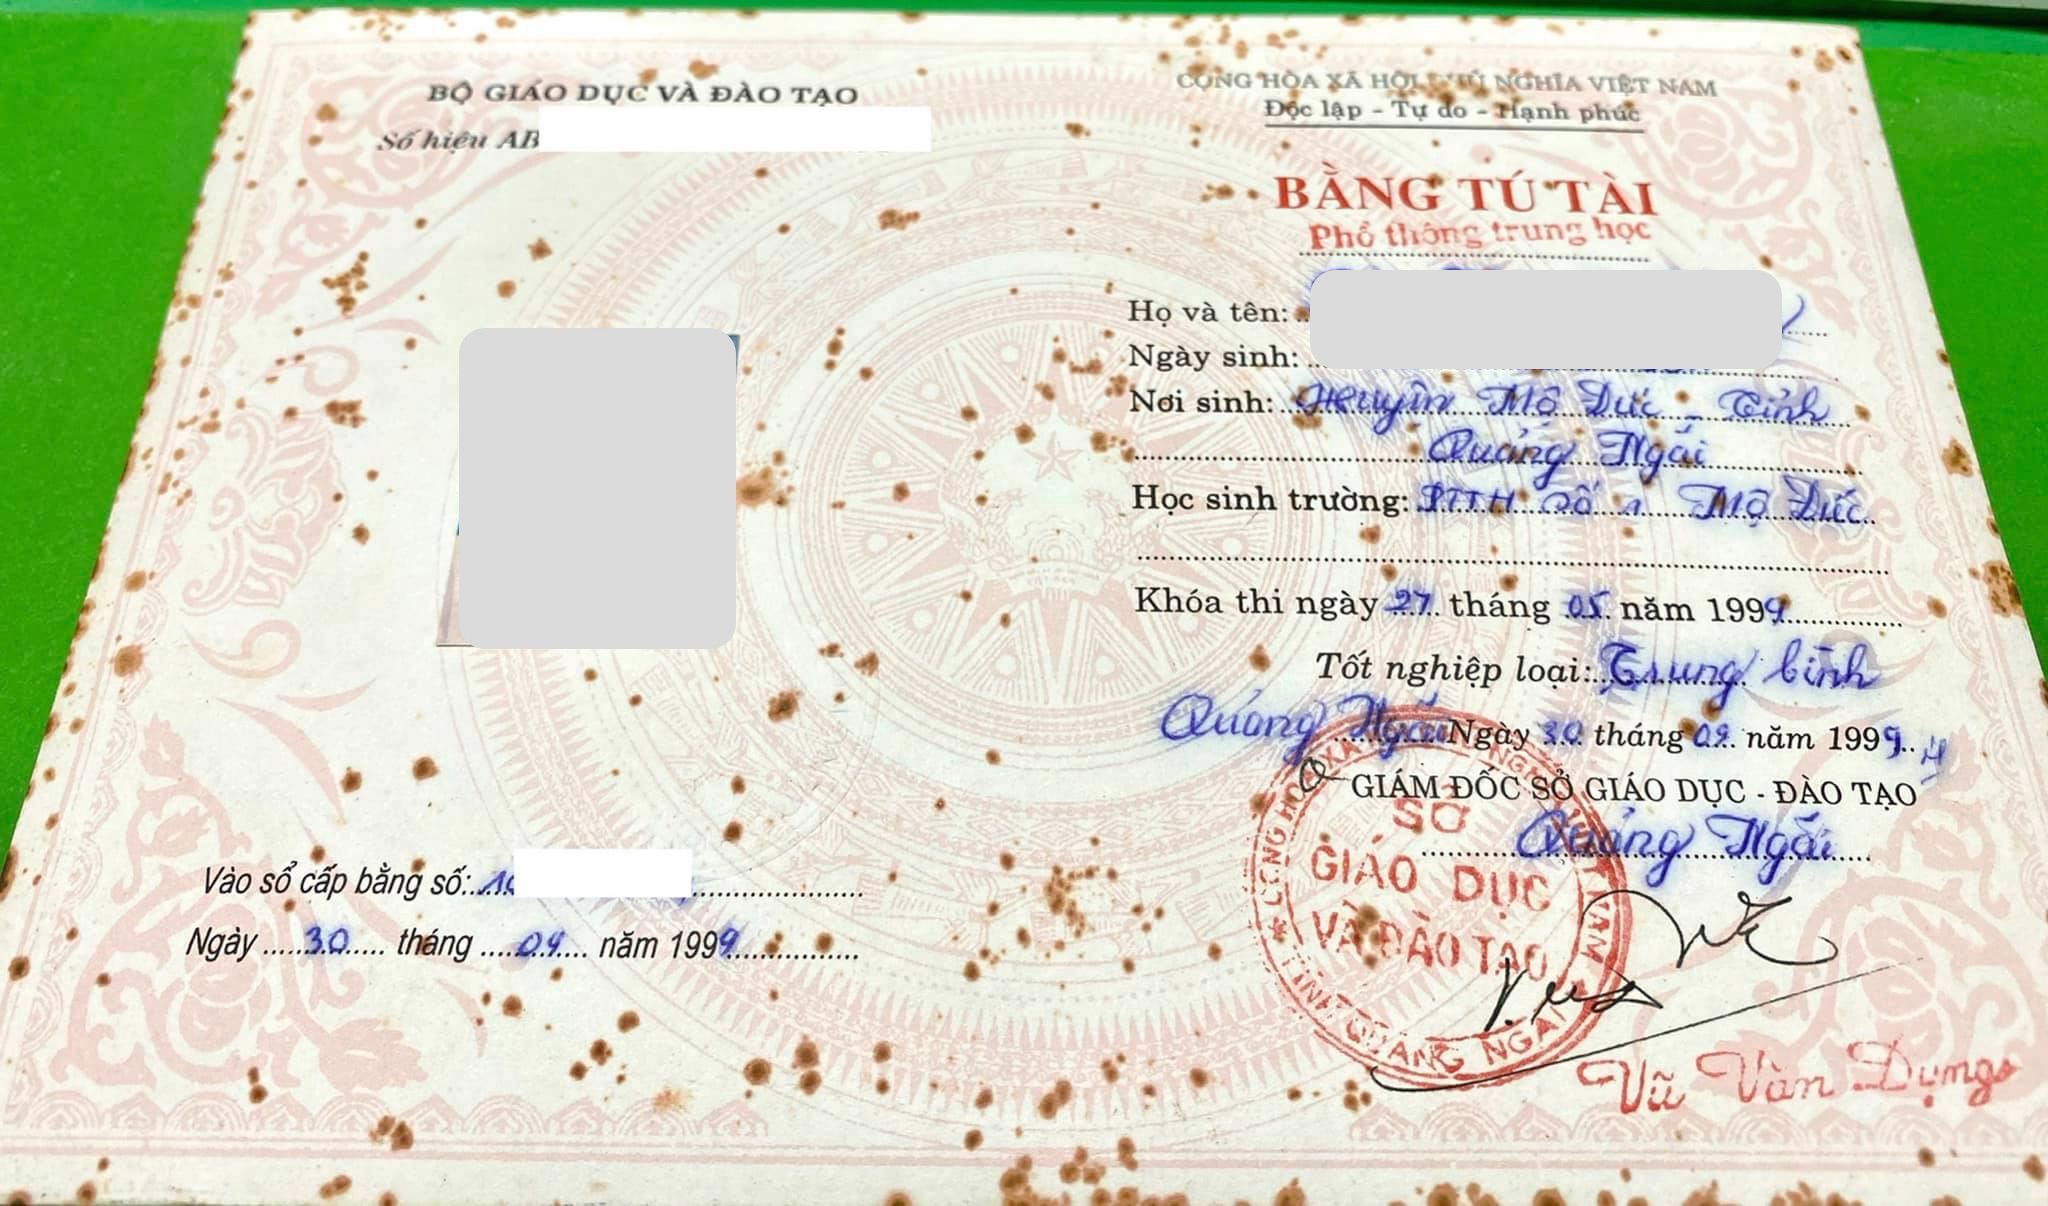 BỘ GIÁO DỤC VÀ ĐÀO TẠO
Số hiệu AB
CỘNG HÒA XÃ HỘI CHỦ NGHĨA VIỆT NAM
Độc lập - Tự do - Hạnh phúc
BẰNG TÚ TÀI
Phổ thông trung học
Họ và tên:
Ngày sinh:
Nơi sinh: Huyện Mộ Đức - Tỉnh
Quảng Ngãi
Học sinh trường: PTTH Số 1 Mộ Đức
Khóa thi ngày 27 tháng 05 năm 1999
Tốt nghiệp loại: Trung bình
Quảng Ngãi Ngày 30 tháng 09 năm 1999
GIÁM ĐỐC SỞ GIÁO DỤC - ĐÀO TẠO
Quảng Ngãi
SỞ
GIÁO DỤC
VÀ ĐÀO TẠO
CỘNG HÒA XÃ HỘI CHỦ NGHĨA VIỆT NAM
TỈNH QUẢNG NGÃI
Vũ Văn Dụng
Vào sổ cấp bằng số: 10
Ngày 30 tháng 09 năm 1999